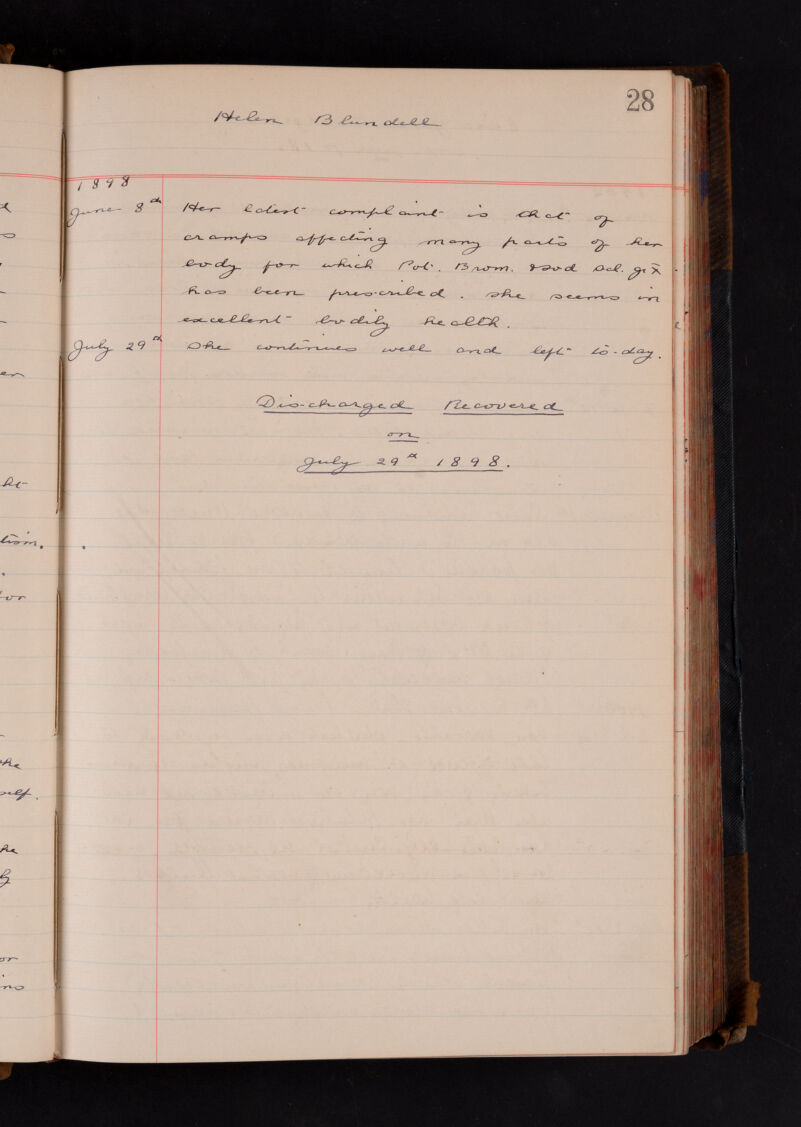 28
Helen Blundell
1898
June 8th Her latest complaint is that of
cramps affecting many parts of her
body for which Pot. Brom. & Sod Sal. gr x
has been prescribed. She seems in
excellent bodily health.
July 29th She continues well and left to-day.
Discharged Recovered
on
July 29th 1898.